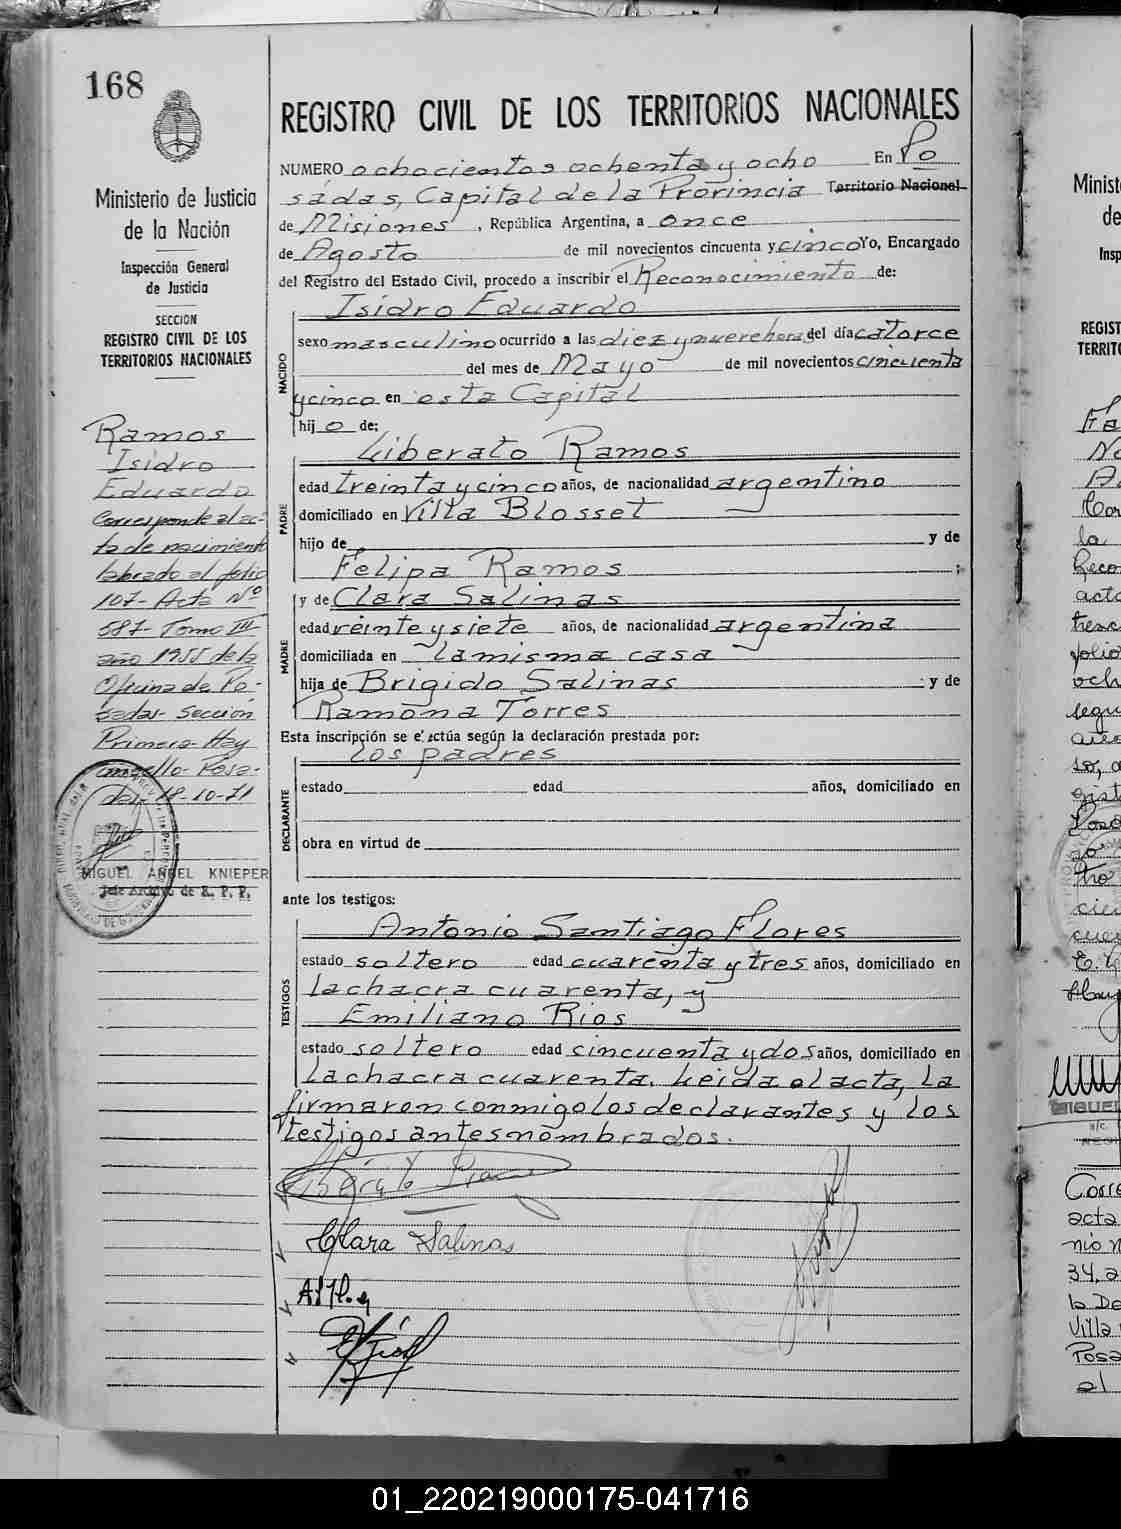 168
Ministerio de Justicia
de la Nación
Inspección General
de Justicia
SECCION
REGISTRO CIVIL DE LOS
TERRITORIOS NACIONALES
Ramos
Isidro
Eduardo
Corresponde al ac-
ta de nacimiento
labrado al folio
107- Acta Nº
587- Tomo III
año 1955 de la
Oficina de Po-
sadas- Sección
Primera- Hay
Posa-
das- 18-10-71
MIGUEL ANGEL KNIEPER
Jefe Archivo de R. P. P.
REGISTRO CIVIL DE LOS TERRITORIOS NACIONALES
NUMERO ochocientos ochenta y ocho En Po
sadas, Capital de la Provincia Territorio Nacional
de Misiones, República Argentina, a once
de Agosto de mil novecientos cincuenta y cinco Yo, Encargado
del Registro del Estado Civil, procedo a inscribir el Reconocimiento de:
NACIDO
Isidro Eduardo
sexo masculino ocurrido a las diez y nueve horas del día catorce
del mes de Mayo de mil novecientos cincuenta
y cinco en esta Capital
hijo de:
PADRE
Liberato Ramos
edad treinta y cinco años, de nacionalidad argentino
domiciliado en Villa Blosset
hijo de y de
Felipa Ramos ;
MADRE
y de Clara Salinas
edad veinte y siete años, de nacionalidad argentina
domiciliada en la misma casa
hija de Brigido Salinas y de
Ramona Torres
Esta inscripción se efectúa según la declaración prestada por:
los padres
DECLARANTE
estado edad años, domiciliado en
obra en virtud de
ante los testigos:
TESTIGOS
Antonio Santiago Flores
estado soltero edad cuarenta y tres años, domiciliado en
la chacra cuarenta, y
Emiliano Rios
estado soltero edad cincuenta y dos años, domiciliado en
la chacra cuarenta. Leida el acta, la
firmaron conmigo los declarantes y los
testigos antes nombrados.
Liberato
Clara Salinas
Minist
de
Insp
REGIST
TERRITO
la
acta
folio
MIGUEL
Corre
acta
34, a
la De
Villa
Posa
el
01_220219000175-041716